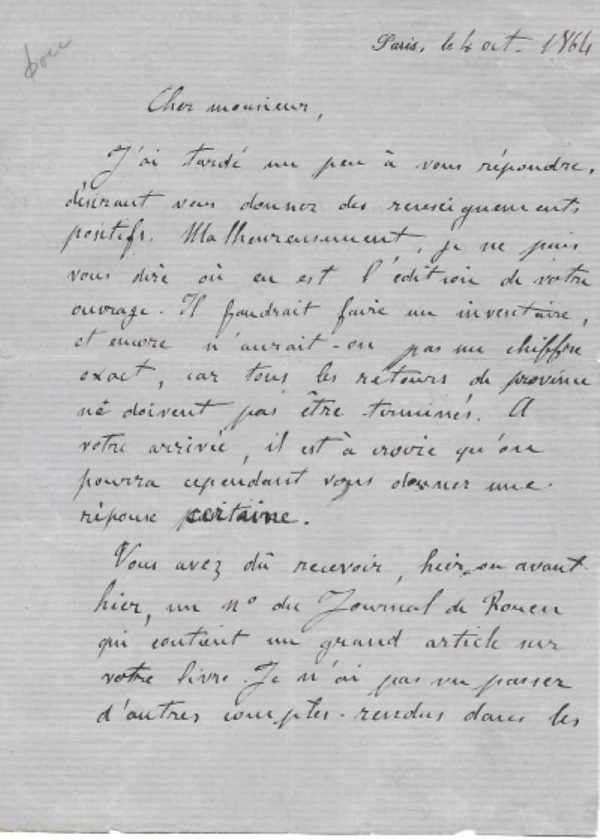 Paris, le 4 oct. 1864
Cher monsieur,
J'ai tardé un peu à vous répondre,
désirant vous donner des renseignements
positifs. Malheureusement, je ne puis
vous dire où en est l'édition de votre
ouvrage. Il faudrait faire un inventaire,
et encore n'aurait-on pas un chiffre
exact, car tous les retours de province
ne doivent pas être terminés. A
votre arrivée, il est à croire qu'on
pourra cependant vous donner une
réponse certaine.
Vous avez dû recevoir, hier ou avant-
hier, un nº du Journal de Rouen
qui contient un grand article sur
votre livre. Je n'ai pas vu passer
d'autres comptes-rendus dans les